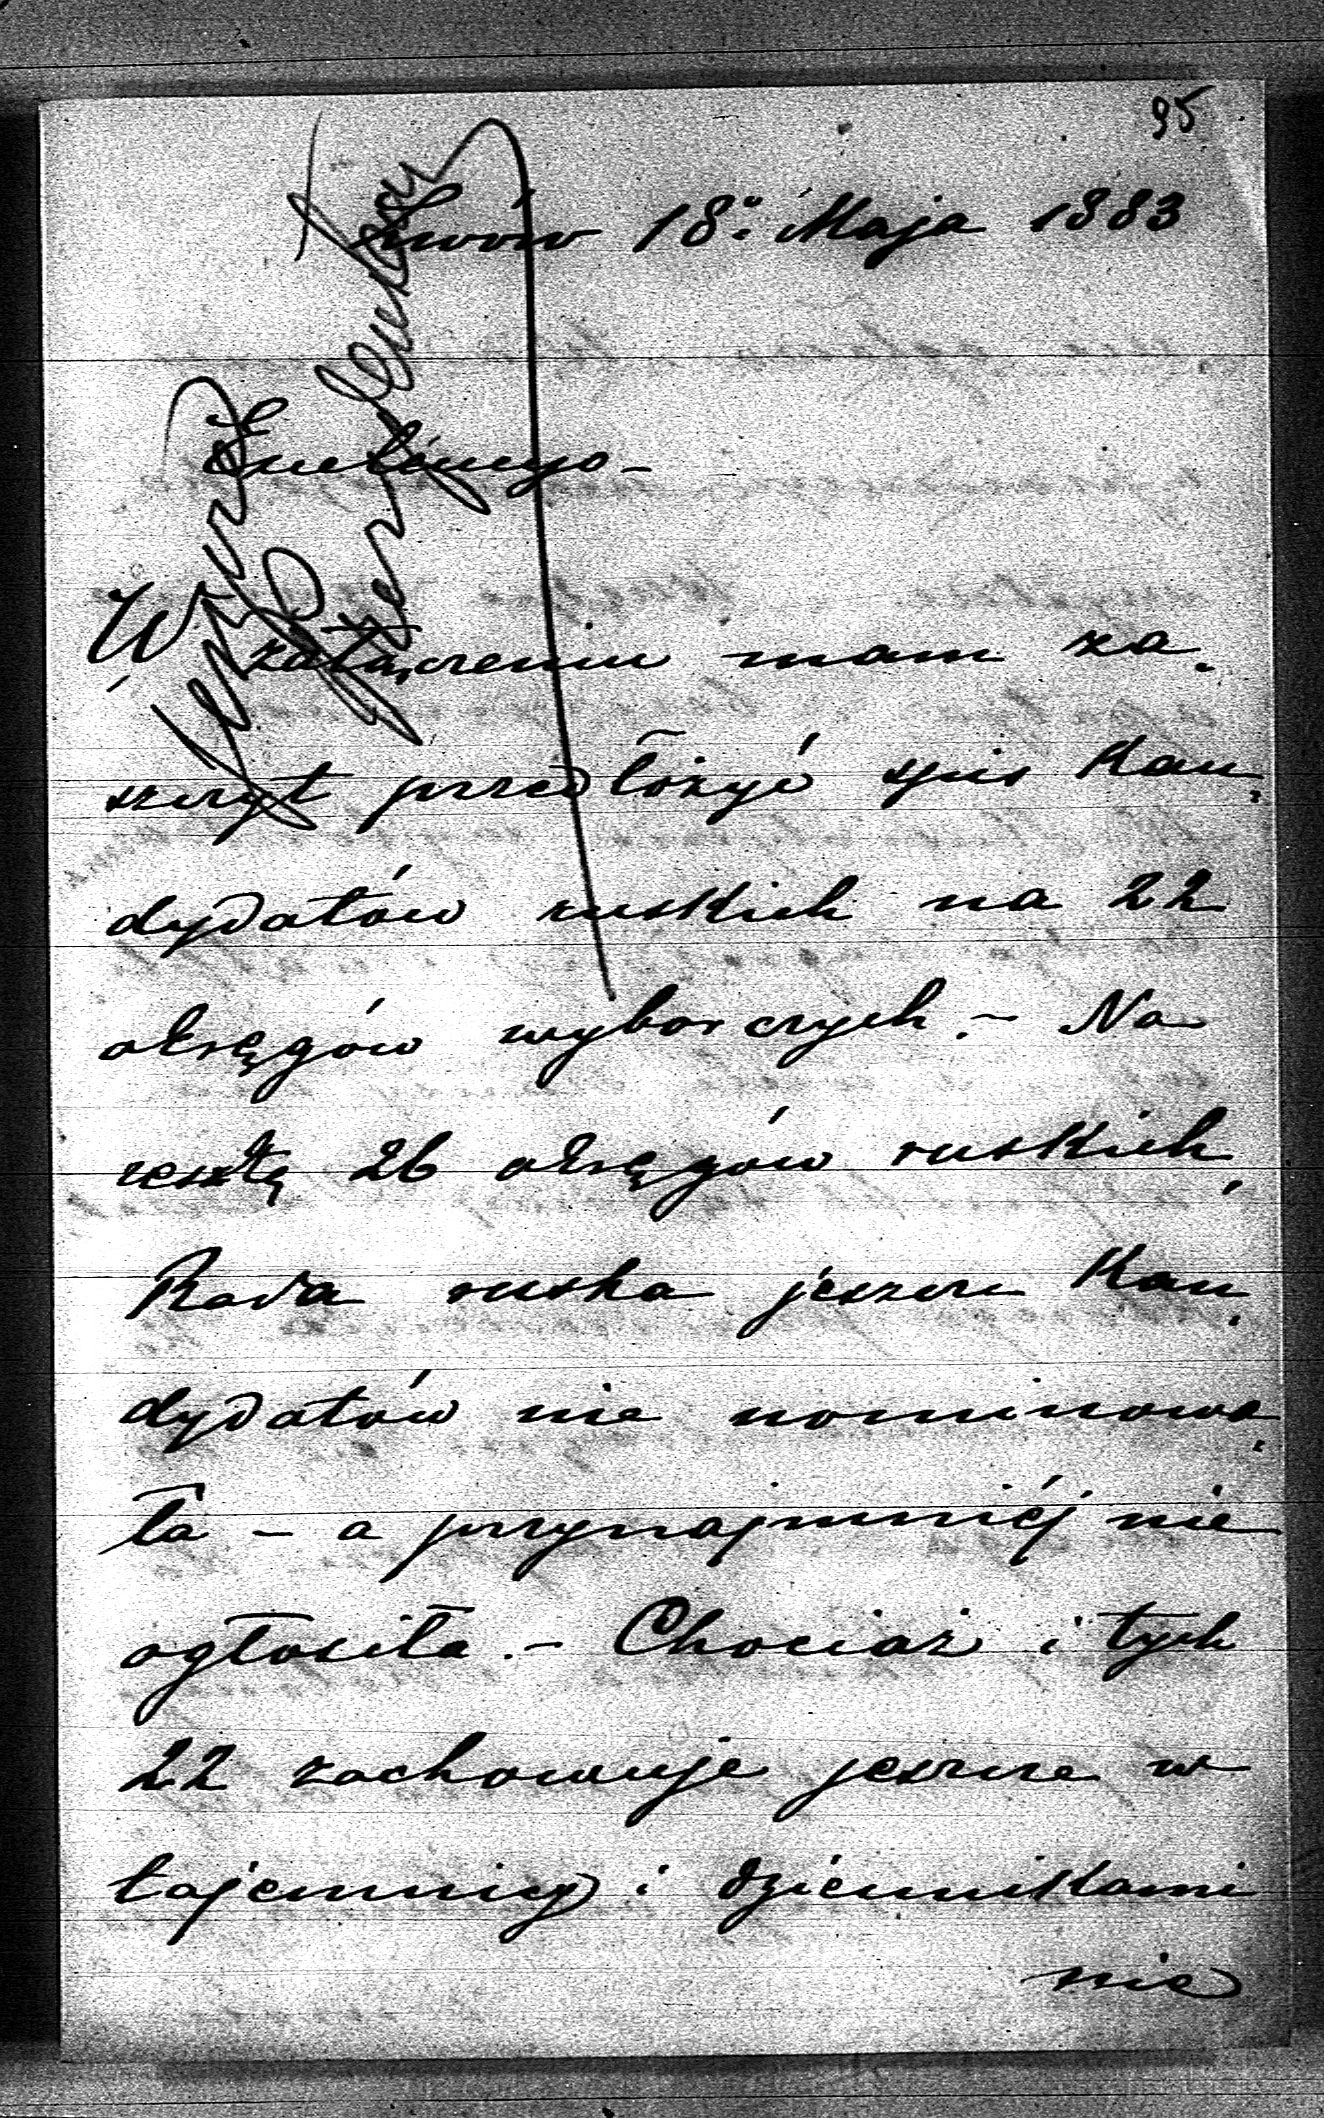 95
Lwów 18: Maja 1883
W załączeniu mam za-
szczyt przedłożyć spis kan-
dydatów ruskich na 22
okręgów wyborczych. – Na
resztę 26 okręgów ruskich,
Rada ruska jeszcze kan-
dydatów nie nominowa-
ła – a przynajmniéj nie
ogłosiła. – Chociaż i tych
22 zachowuje jeszcze w
tajemnicy i dziennikami
nie